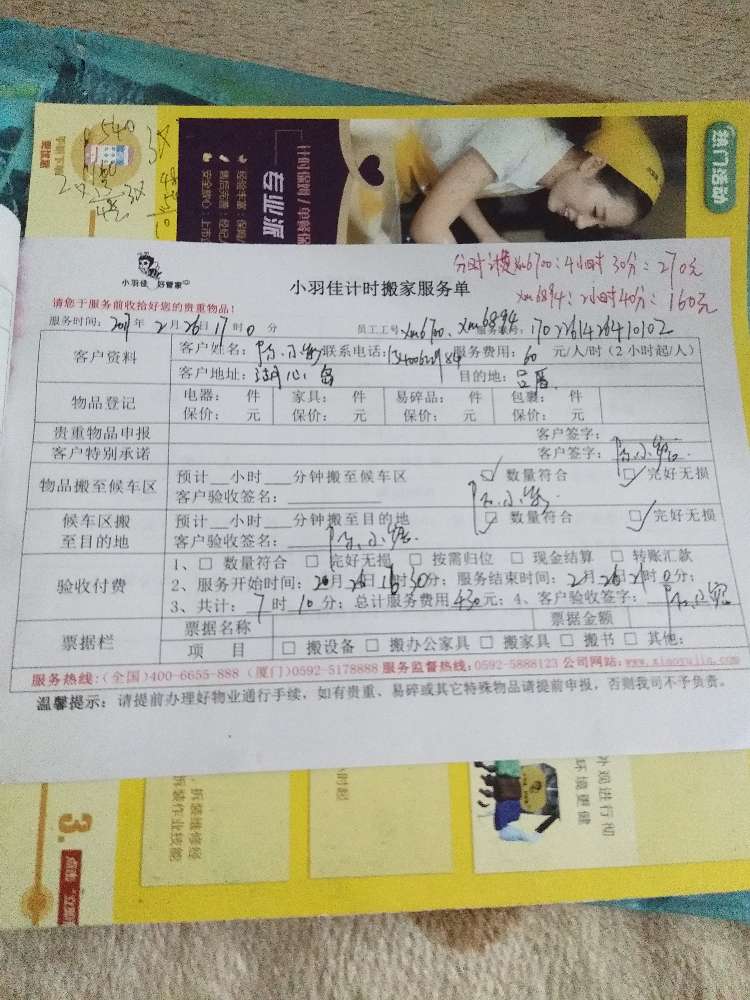 热门活动
专业派
小羽佳 好管家
小羽佳计时搬家服务单
分时计费xm6700:4小时30分=270元
xm6894:2小时40分=160元
请您于服务前收拾好您的贵重物品!
服务时间: 2017年2月26日17时0分 员工工号xm6700、xm6894
客户资料
客户姓名: 联系电话: 服务费用:60元/人/时(2小时起/人)
客户地址:湖心岛 目的地:吕厝
物品登记
电器: 件 家具: 件 易碎品: 件 包裹: 件
保价: 元 保价: 元 保价: 元 保价: 元
贵重物品申报 客户签字:
客户特别承诺 客户签字:
物品搬至候车区
预计__小时___分钟搬至候车区 数量符合 完好无损
客户验收签名:
候车区搬至目的地
预计__小时___分钟搬至目的地 数量符合 完好无损
客户验收签名:
验收付费
1、□ 数量符合 □ 完好无损 □ 按需归位 □ 现金结算 □ 转账汇款
2、服务开始时间: 2月26日16时30分; 服务结束时间: 2月26日21时0分;
3、共计: 7时10分; 总计服务费用430元; 4、客户验收签字:
票据栏
票据名称 票据金额
项 目 □ 搬设备 □ 搬办公家具 □ 搬家具 □ 搬书 □ 其他:
服务热线:(全国)400-6655-888 (厦门)0592-5178888 服务监督热线:0592-5888123 公司网站:www.xiaoyujia.com
温馨提示: 请提前办理好物业通行手续,如有贵重、易碎或其它特殊物品请提前申报,否则我司不予负责。
外观进行彻
环境更健
拆装维修经
拆装作业技能
3.